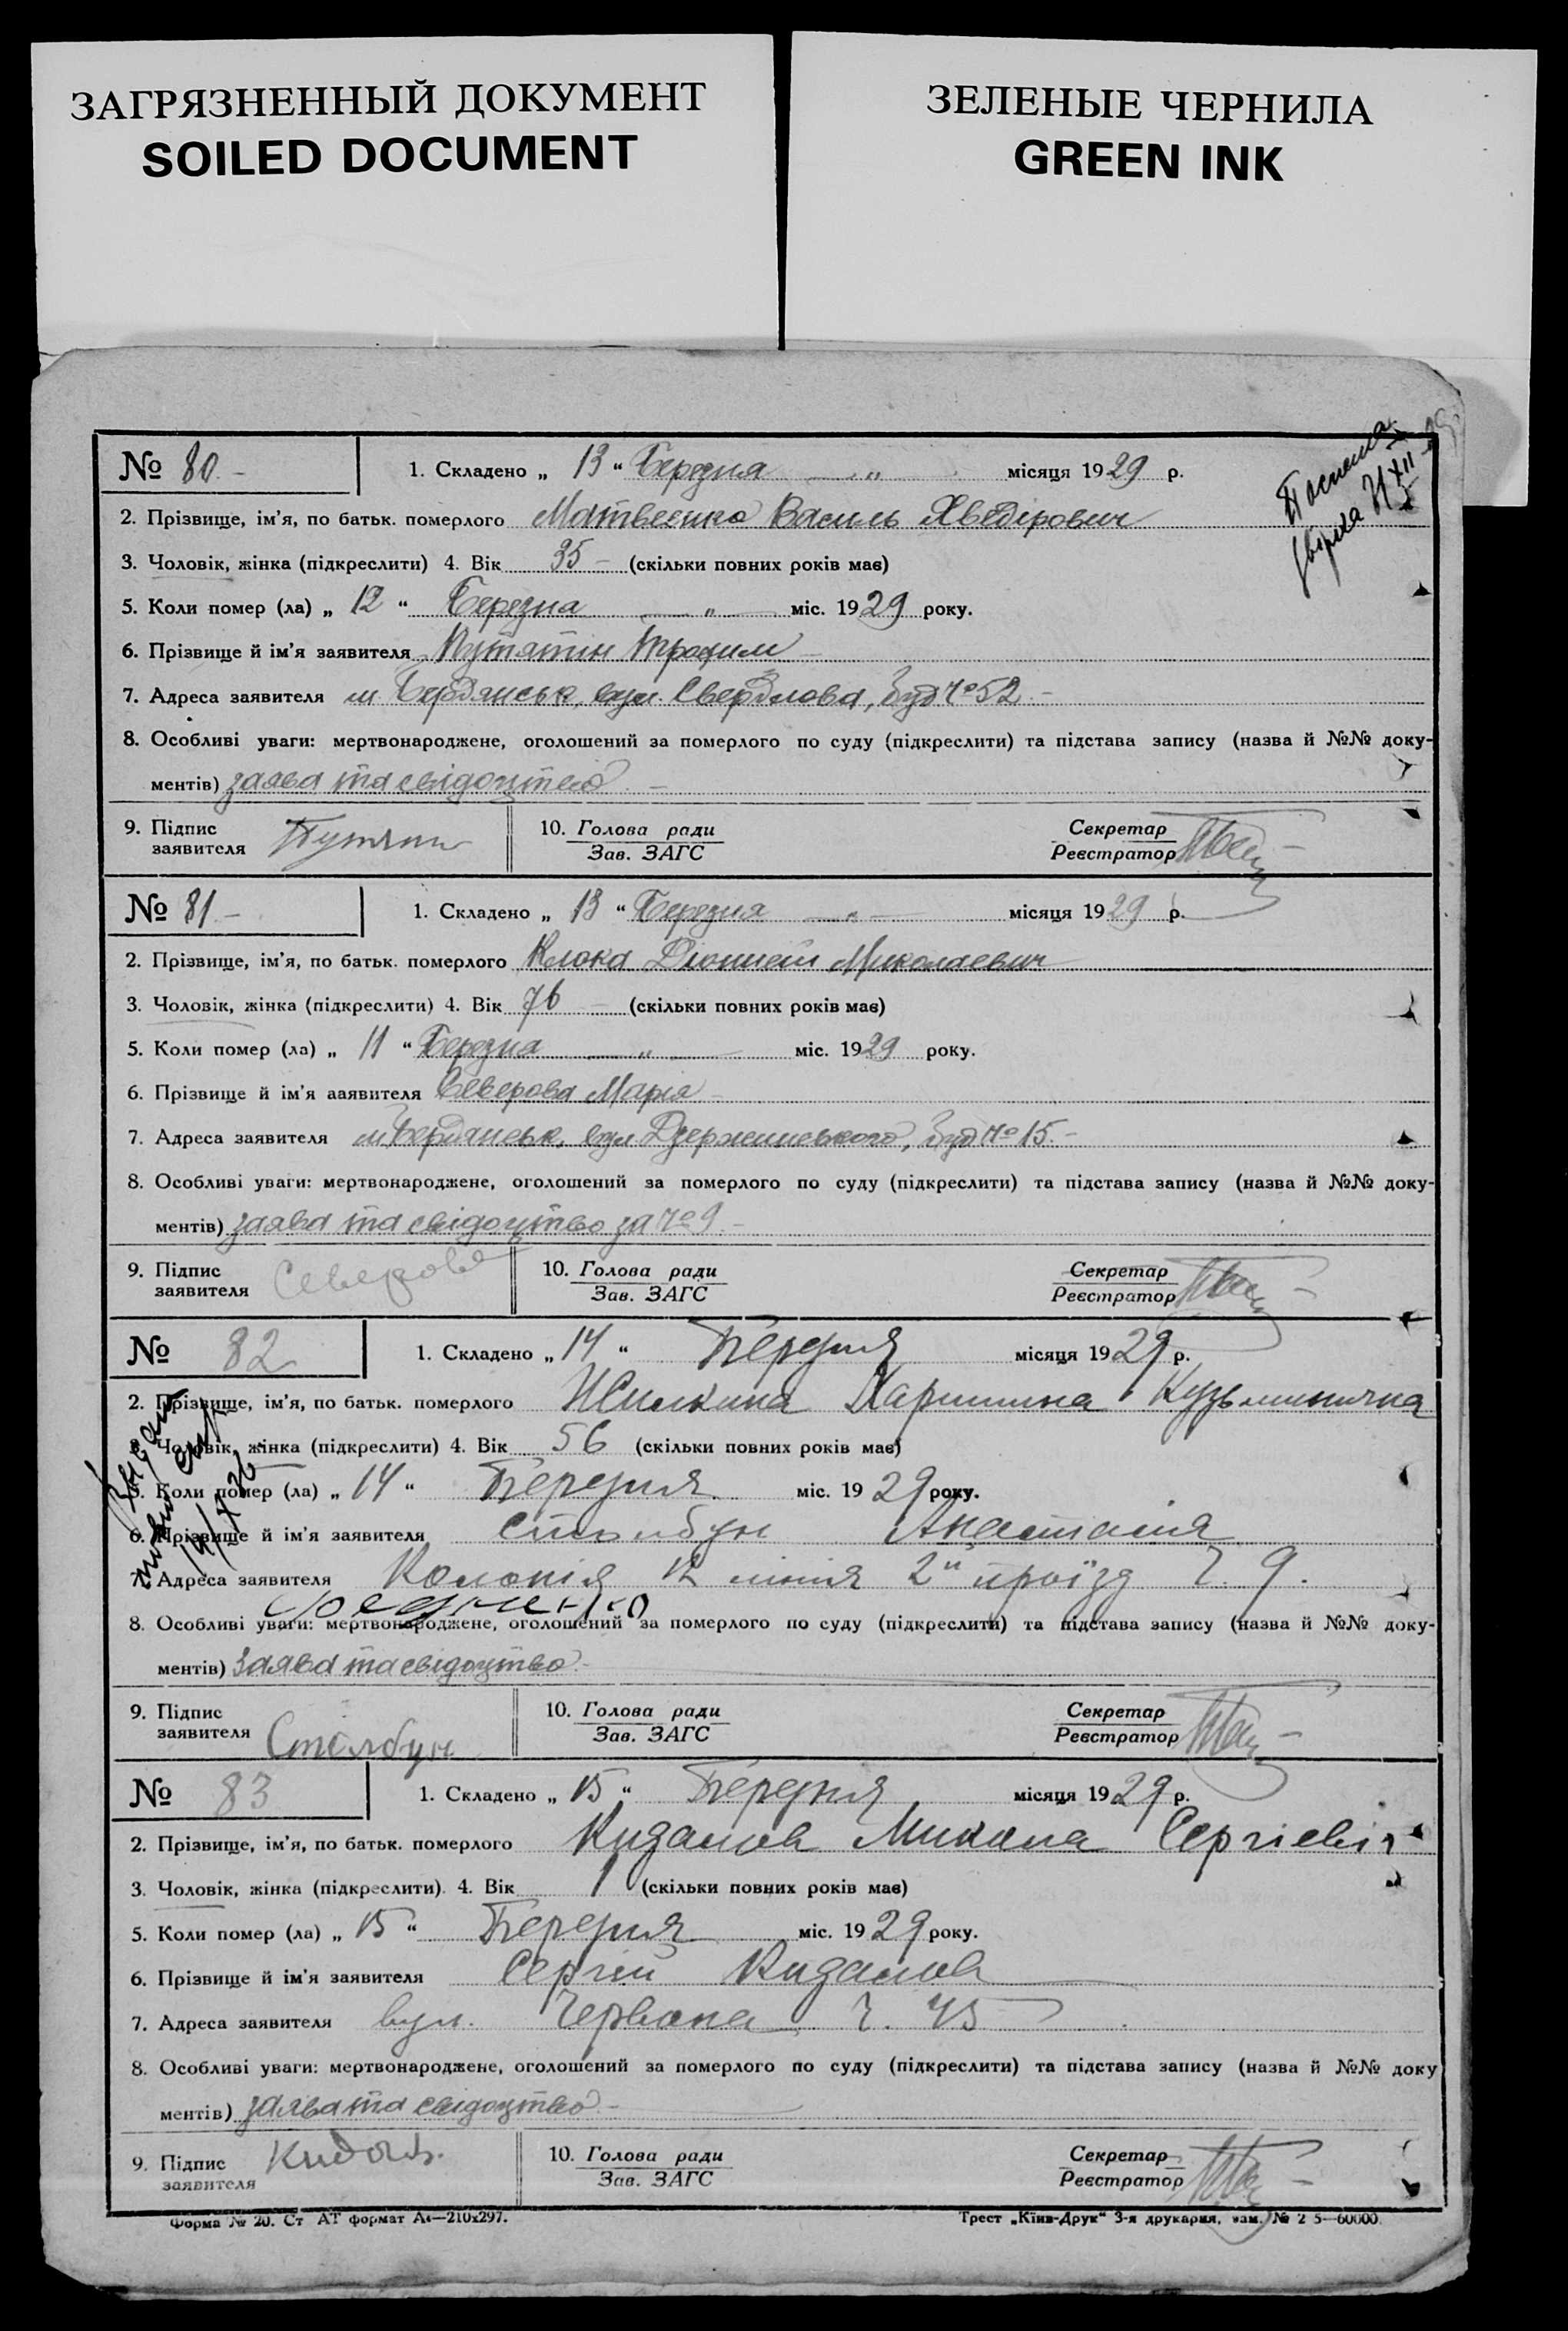 ЗАГРЯЗНЕННЫЙ ДОКУМЕНТ
SOILED DOCUMENT
ЗЕЛЕНЫЕ ЧЕРНИЛА
GREEN INK
№ 80 –
1. Складено „ 13 “ Березня — „ місяця 1929 р.
2. Прізвище, ім’я, по батьк. померлого Матвеенко Василь Хведірович
3. Чоловік, жінка (підкреслити) 4. Вік 35 – (скільки повних років має)
5. Коли помер (ла) „ 12 “ Березна — „ — міс. 1929 року.
6. Прізвище й ім’я заявителя Путятін Трофим –
7. Адреса заявителя м. Бердянськ, вул. Свердлова, буд № 52 –
8. Особливі уваги: мертвонароджене, оголошений за померлого по суду (підкреслити) та підстава запису (назва й №№ доку-
ментів) заява та свідоцтво –
9. Підпис
заявителя
10. Голова ради
Зав. ЗАГС
Секретар
Реєстратор
№ 81 –
1. Складено „ 13 “ Березня — „ — місяця 1929 р.
2. Прізвище, ім’я, по батьк. померлого Клока Миколаевич
3. Чоловік, жінка (підкреслити) 4. Вік 76 – (скільки повних років має)
5. Коли помер (ла) „ 11 “ Березна — „ — міс. 1929 року.
6. Прізвище й ім’я ааявителя Северова Марія –
7. Адреса заявителя м. Бердянськ, вул Дзержинського, буд № 15. –
8. Особливі уваги: мертвонароджене, оголошений за померлого по суду (підкреслити) та підстава запису (назва й №№ доку-
ментів) заява та свідоцтво за № 9 –
9. Підпис
заявителя Северова
10. Голова ради
Зав. ЗАГС
Секретар
Реєстратор
№ 82
1. Складено „ 14 “ Березня місяця 1929 р.
2. Прізвище, ім’я, по батьк. померлого Харитина Кузьминична
3. Чоловік, жінка (підкреслити) 4. Вік 56 (скільки повних років має)
5. Коли помер (ла) „ 14 “ Березня міс. 1929 року.
6. Прізвище й ім’я заявителя Столбун Анастасія
7. Адреса заявителя Колонія лінія 2й проїзд ч. 9.
8. Особливі уваги: мертвонароджене, оголошений за померлого по суду (підкреслити) та підстава запису (назва й №№ доку-
ментів) Заява та свідоцтво –
9. Підпис
заявителя Столбун
10. Голова ради
Зав. ЗАГС
Секретар
Реєстратор
№ 83
1. Складено „ 15 “ Березня місяця 1929 р.
2. Прізвище, ім’я, по батьк. померлого Микола Сергієвіч
3. Чоловік, жінка (підкреслити). 4. Вік 1 (скільки повних років має)
5. Коли помер (ла) „ 15 “ Березня міс. 1929 року.
6. Прізвище й ім’я заявителя Сергій
7. Адреса заявителя вул. Червона ч. 45
8. Особливі уваги: мертвонароджене, оголошений за померлого по суду (підкреслити) та підстава запису (назва й №№ доку
ментів) заява та свідоцтво –
9. Підпис
заявителя
10. Голова ради
Зав. ЗАГС
Секретар
Реєстратор
Форма № 20. Ст АТ формат А4—210х297.
Трест „Київ-Друк“ 3-я друкарня, зам. № 2 5—60000.